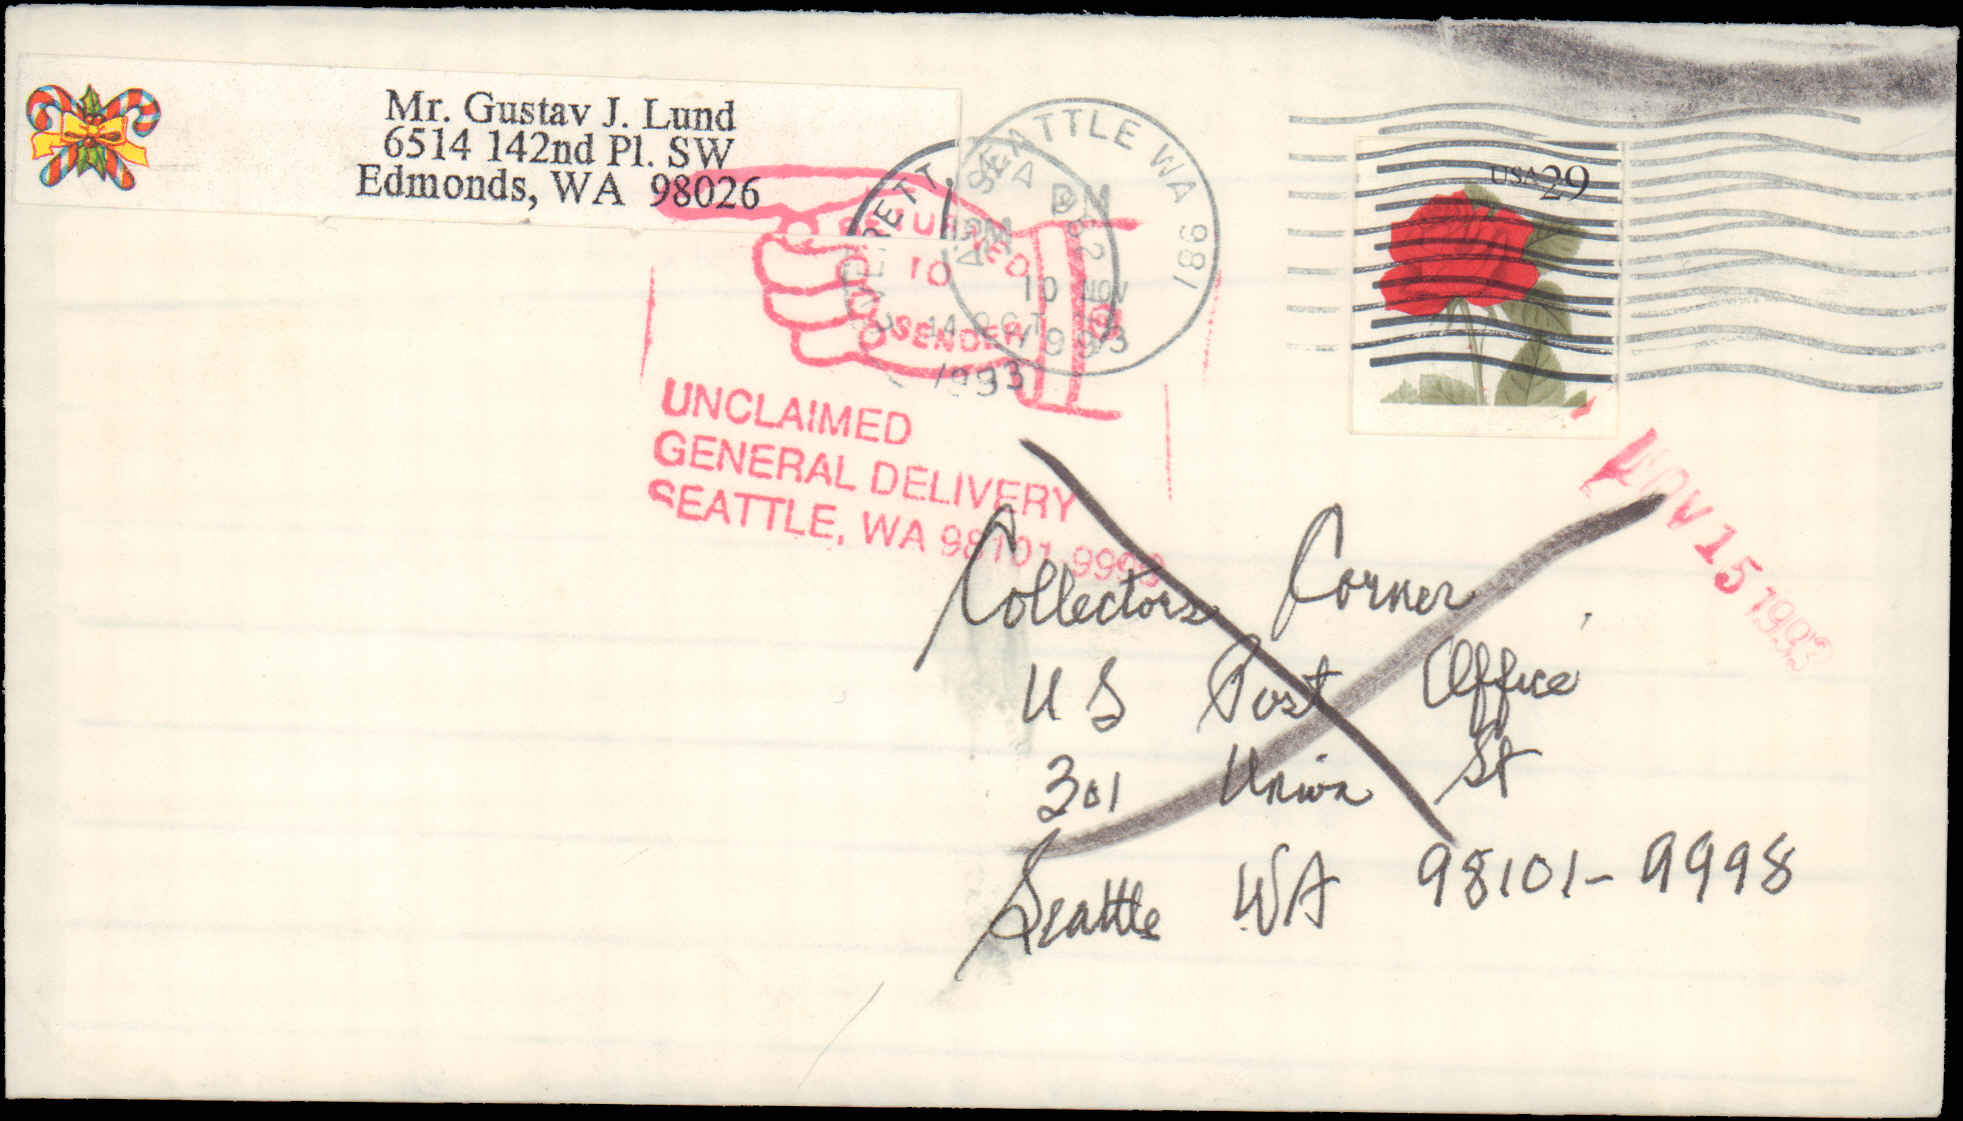 Mr. Gustav J. Lund
6514 142nd Pl. SW
Edmonds, WA 98026
SEATTLE WA 981
PM
10 NOV
1993
EVERETT,
PM
14 OCT
1993
RETURNED
TO
SENDER
USA 29
UNCLAIMED
GENERAL DELIVERY
SEATTLE, WA 98101-9999
NOV 15 1993
Collectors Corner
US Post Office
301 Union St
Seattle WA 98101-9998